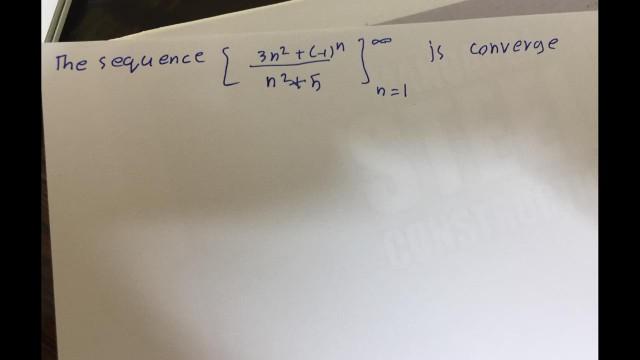 The sequence [ (3n² + (-1)ⁿ) / (n² + 5) ]ₙ₌₁^∞ is converge